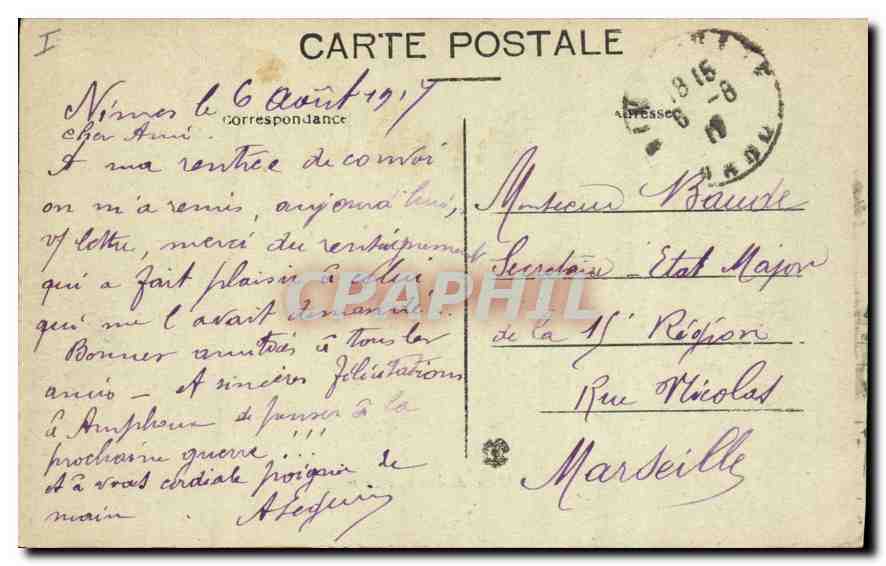 I
CARTE POSTALE
Nîmes le 6 Août 1917
Correspondance
Cher Ami.
A ma rentrée de convoi
on m'a remis, aujourd'hui,
v/ lettre, merci du renseignement
qui a fait plaisir à celui
qui me l'avait demandé.
Bonnes amitiés à tous les
amis - et sincères félicitations
à Amphoux de penser à la
prochaine guerre !!!
et à vous cordiale poignée de
main
Adresse
18 15
6 -8
17
Monsieur Baude
Secrétaire Etat Major
de la 15e Région
Rue Nicolas
Marseille
CPAPHIL